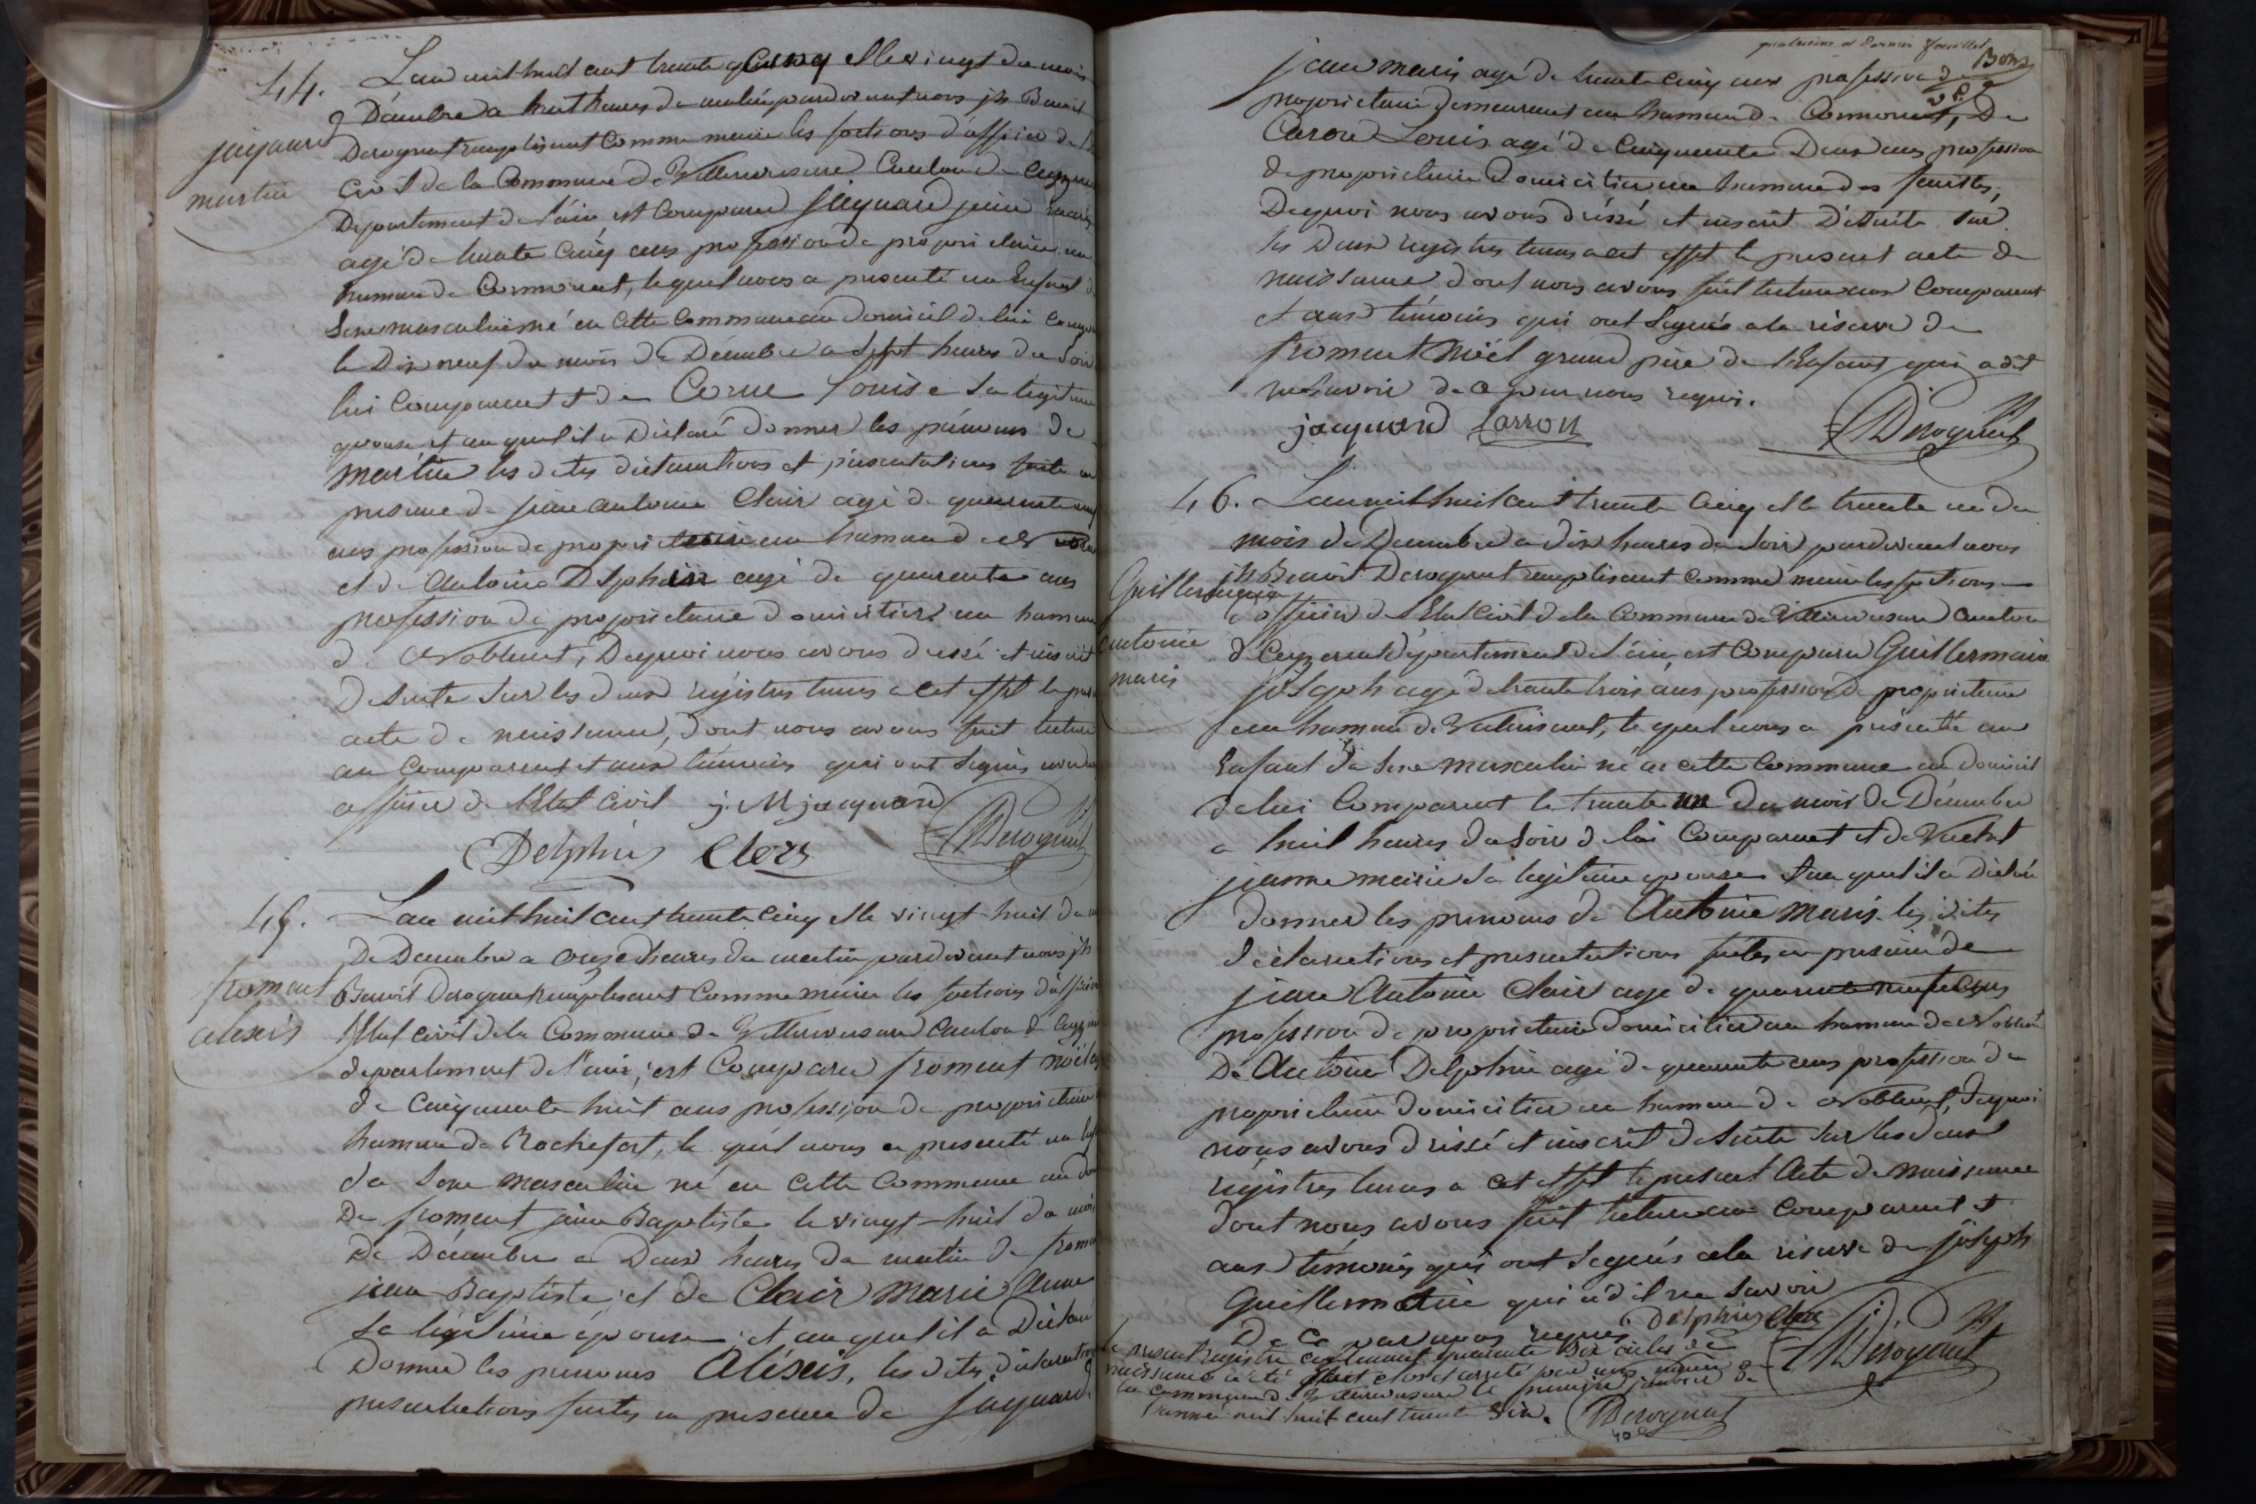 44.
jaquard
martin
L'an mil huit cent trente cinq et le vingt du mois
Décembre a huit heures du matin pardevant nous jh Benoit
Derognat remplisant comme maire les foctions d'officier de l'
Civil de la Commune de Villereversure Canton de Ceyzeriat
Departement de l'ain, est comparu jaquard jean marie
agé de trente cinq ans profession de propriétaire au
hameau de Conmorand, lequel nous a presenté un Enfant du
Sexe masculin né en cette Commune au domicil de lui comparant
le Dix neuf du mois de Décembre a Sept heures du Soir
lui Comparent et de Corne Louise Sa légitime
epouse et au quel il a Déclaré donner les prénoms de
martin les dites déclarations et présentations faite en
présence de jean antoine Clair agé de quarante neuf
ans profession de proprietaire au hameau de Noblens
et de Antoine Delphin agé de quarente ans
profession de proprietaire domicilier au hameau
de Noblent, Dequoi nous avons dressé et inscrit
de Suite Sur les deux régistres tenus a cet effet le present
acte de naissance, dont nous avons fait lecture
au Comparent et aux témoins qui ont Signés avec nous
officier de l'Etat Civil j. M jacquard
Delphin Clerc Derognat
45.
froment
alexis
L'an mil huit cent trente cinq et le vingt-huit du m
De Decembre a onze heures du matin pardevant nous jh
Benoit Derognat remplisant Comme maire les foctions d'officier
l'Etat civil de la Commune de Villereversure Canton de Ceyzeriat
departement de l'ain, est Comparu froment noël agé
de Cinquante huit ans profession de proprietaire
hameau de Rochefort, le quel nous a presenté un Enf
du Sexe masculin né en cette Commune au do
De froment jean Baptiste le vingt-huit du mois
de Décembre a Deux heures du matin de froment
jean Baptiste et de Clair Marie Anne
Sa légitime épouse et au quel il a Déclaré
Donner les prenoms Aléxis, les dites déclarations
presentations faites en presence de jaquard
quatorzieme et Dernier feuillet
Bons
jean marie agé de trente cinq ans profession de
proprietaire demeurant au hameau de Conmorand, De
Caron Louis agé de Cinquante Deux ans profession
de proprietaire Domicilier au hameau des feuilles,
Dequoi nous avons dréssé et inscrit De Suite Sur
les Deux registres tenus a cet effet le present acte de
naissance dont nous avons fait lecture au Comparent
et aux témoins qui ont Signés a la réserve de
froment Noël grand père de l'Enfant qui a dit
ne Savoir de ce par nous requi.
jacquard Carron Derognat
46.
Guillermain
antoine
marie
L'an mil huit cent trente cinq et le trente un du
mois de Decembre a Dix heures du Soir pardevant nous
jh Benoit Derognat remplisant comme maire les foctions
d'officier de l'Etat Civil de la Commune de Villereversure Canton
de Ceyzeriat département de l'ain, est Comparu Guillermain
joseph agé de trente trois ans, profession de proprietaire
au hameau de Valuisant, le quel nous a présenté un
Enfant du Sexe masculin né en cette Commune au domicil
de lui Comparent le trente un du mois de Décembre
a huit heures du Soir de lui Comparent et de Vuchet
jeanne marie Sa legitime epouse et au quel il a Déclaré
donner les prenoms de Antoine Marie les dites
déclarations et presentations faites en presence de
jean Antoine Clair agé de quarente neuf ans
profession de proprietaire domicilier au hameau de Noblens
De Antoine Delphin agé de quarente ans profession de
proprietaire domicilier au hameau de Noblent, Dequoi
nous avons dréssé et inscrit de Suite Sur les deux
régistres tenus a cet effet le present Acte de naissance
dont nous avons fait lecture au Comparent et
aux témoins qui ont Signés a la réserve de joseph
Guillermain qui a dit ne Savoir
De ce par nous requis Delphin Clerc Derognat
Le present registre contenant quarente Six actes de
naissance a été clos et arreté par nous maire de
la commune de Villereversure le premier janvier de
l'année mil huit cent trente Six. Derognat